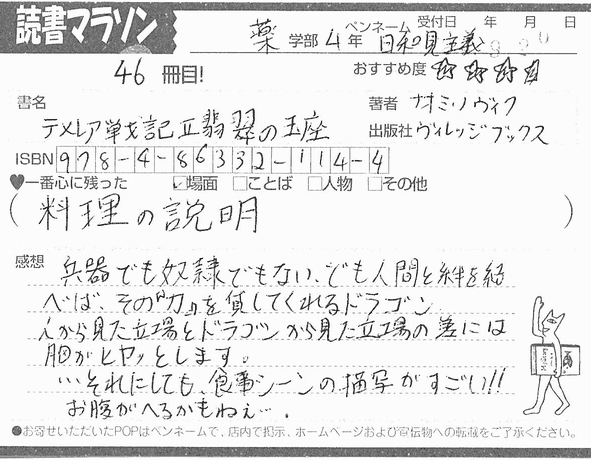 読書マラソン
46 冊目!
薬 学部 4年 ペンネーム 日和見主義 受付日 年 月 日
おすすめ度 ☆☆☆☆
書名 テメレア戦記Ⅱ翡翠の玉座
著者 ナオミ・ノヴィク
出版社 ヴィレッジブックス
ISBN 978-4-86332-114-4
♥一番心に残った ☑場面 □ことば □人物 □その他
(料理の説明)
感想 兵器でも奴隷でもない、でも人間と絆を結
べば、その"力"を貸してくれるドラゴン
人から見た立場とドラゴンから見た立場の差には
胸がヒヤッとします。
…それにしても、食事シーンの描写がすごい!!
お腹がへるかもねぇ…。
●お寄せいただいたPOPはペンネームで、店内で掲示、ホームページおよび宣伝物への転載をご了承ください。